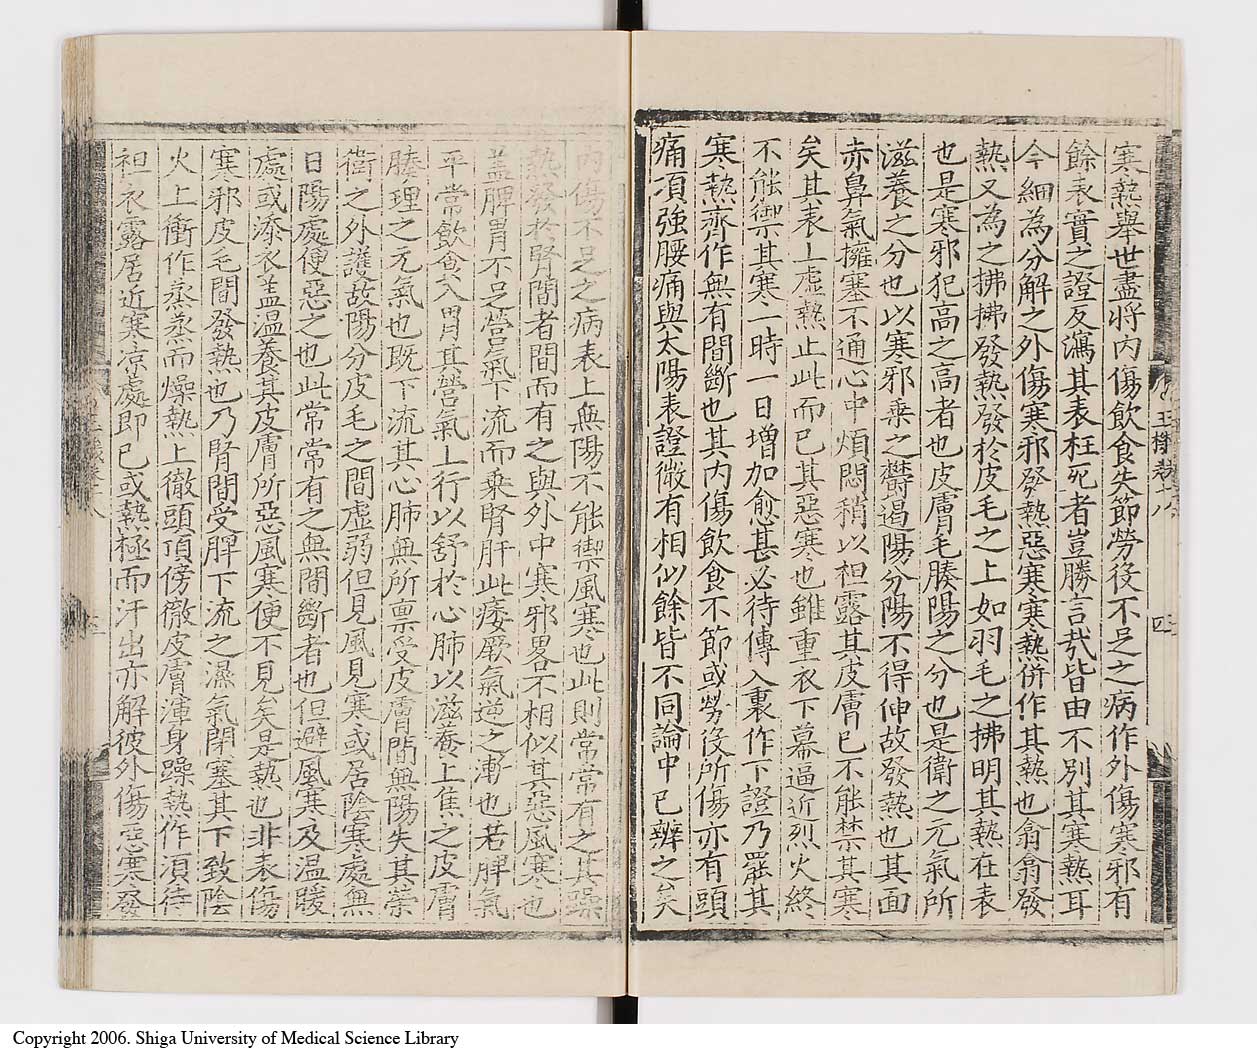 寒熱舉世盡將内傷飲食失節勞役不足之病作外傷寒邪有
餘表實之證反瀉其表枉死者豈勝言哉皆由不別其寒熱耳
今細為分解之外傷寒邪發熱惡寒寒熱併作其熱也翕翕發
熱又為之拂拂發熱發於皮毛之上如羽毛之拂明其熱在表
也是寒邪犯高之高者也皮膚毛腠陽之分也是衛之元氣所
滋養之分也以寒邪乗之欝遏陽分陽不得伸故發熱也其面
赤鼻氣擁塞不通心中煩悶稍以袒露其皮膚已不能禁其寒
矣其表上虛熱止此而已其惡寒也雖重衣下幕逼近烈火終
不能御其寒一時一日增加愈甚必待傳入裏作下證乃罷其
寒熱齊作無有間斷也其内傷飲食不節或勞役所傷亦有頭
痛項強腰痛與太陽表證微有相似餘皆不同論中已辨之矣
内傷不足之病表上無陽不能禦風寒也此則常常有之其躁
熱發於腎間者間而有之與外中寒邪畧不相似其惡風寒也
盖脾胃不足營氣下流而乗腎肝此痿厥氣逆之漸也若脾氣
平常飲食入胃其營氣上行以舒於心肺以滋養上焦之皮膚
腠理之元氣也既下流其心肺無所禀受皮膚間無陽失其榮
衛之外護故陽分皮毛之間虛弱但見風見寒或居陰寒處無
日陽處便惡之也此常常有之無間斷者也但避風寒及温暖
處或添衣盖温養其皮膚所惡風寒便不見矣是熱也非表傷
寒邪皮毛間發熱也乃腎間受脾下流之濕氣閉塞其下致陰
火上衝作蒸蒸而燥熱上徹頭頂傍徹皮膚渾身躁熱作湏待
袒衣露居近寒凉處即已或熱極而汗出亦解彼外傷惡寒發